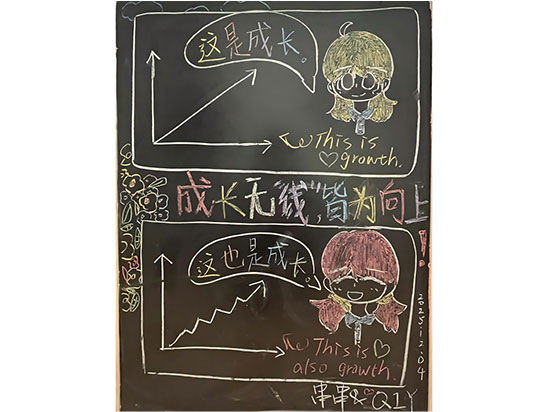 这是成长。
This is
growth.
成长无“线”,皆为向上!
这也是成长。
This is
also growth.
2025.12.04
串串&QIY